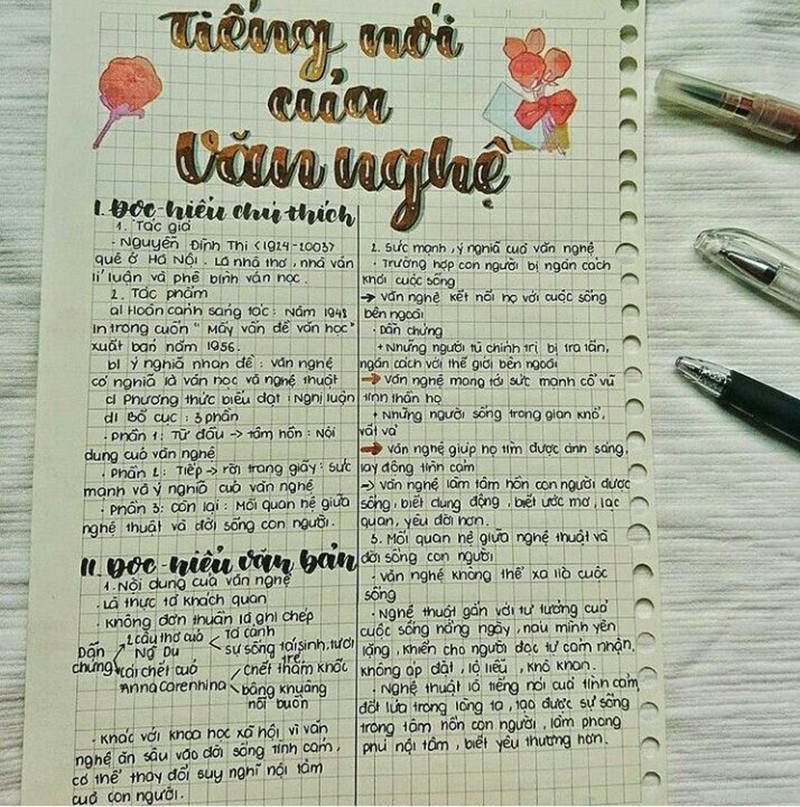 Tiếng nói
của
Văn nghệ
I. Đọc-hiểu chú thích
1. Tác giả
- Nguyễn Đình Thi <1924-2003>
quê ở Hà Nội. Là nhà thơ, nhà văn
lí luận và phê bình văn học.
2. Tác phẩm
a) Hoàn cảnh sáng tác: Năm 1948
in trong cuốn "Mấy vấn đề văn học"
xuất bản năm 1956.
b) ý nghĩa nhan đề: văn nghệ
có nghĩa là văn học và nghệ thuật
c) Phương thức biểu đạt: Nghị luận
d) Bố cục: 3 phần
- Phần 1: Từ đầu -> tâm hồn: Nội
dung của văn nghệ
- Phần 2: Tiếp -> rời trang giấy: sức
mạnh và ý nghĩa của văn nghệ
- Phần 3: Còn lại: Mối quan hệ giữa
nghệ thuật và đời sống con người.
II. Đọc-hiểu văn bản
1. Nội dung của văn nghệ
- Là thực tại khách quan
- Không đơn thuần là ghi chép
Dẫn chứng
2 câu thơ của Ng Du
Tả cảnh
sự sống tái sinh, tươi trẻ
cái chết của Anna Carennina
chết thảm khốc
bâng khuâng nỗi buồn
- Khác với khoa học xã hội vì văn
nghệ ăn sâu vào đời sống tình cảm,
có thể thay đổi suy nghĩ nội tâm
của con người.
2. Sức mạnh, ý nghĩa của văn nghệ
- Trường hợp con người bị ngăn cách
khỏi cuộc sống
-> văn nghệ kết nối họ với cuộc sống
bên ngoài
- Dẫn chứng
+ Những người tù chính trị bị tra tấn,
ngăn cách với thế giới bên ngoài
-> văn nghệ mang tới sức mạnh cổ vũ
tinh thần họ
+ Những người sống trong gian khổ,
vất vả
-> văn nghệ giúp họ tìm được ánh sáng,
lay động tình cảm
-> văn nghệ làm tâm hồn con người được
sống, biết dung động, biết ước mơ, lạc
quan, yêu đời hơn.
3. Mối quan hệ giữa nghệ thuật và
đời sống con người
- văn nghệ không thể xa lìa cuộc
sống
- Nghệ thuật gắn với tư tưởng của
cuộc sống hằng ngày, náu mình yên
lặng, khiến cho người đọc tự cảm nhận,
không áp đặt, lộ liễu, khô khan.
- Nghệ thuật là tiếng nói của tình cảm,
đốt lửa trong lòng ta, tạo được sự sống
trong tâm hồn con người, làm phong
phú nội tâm, biết yêu thương hơn.